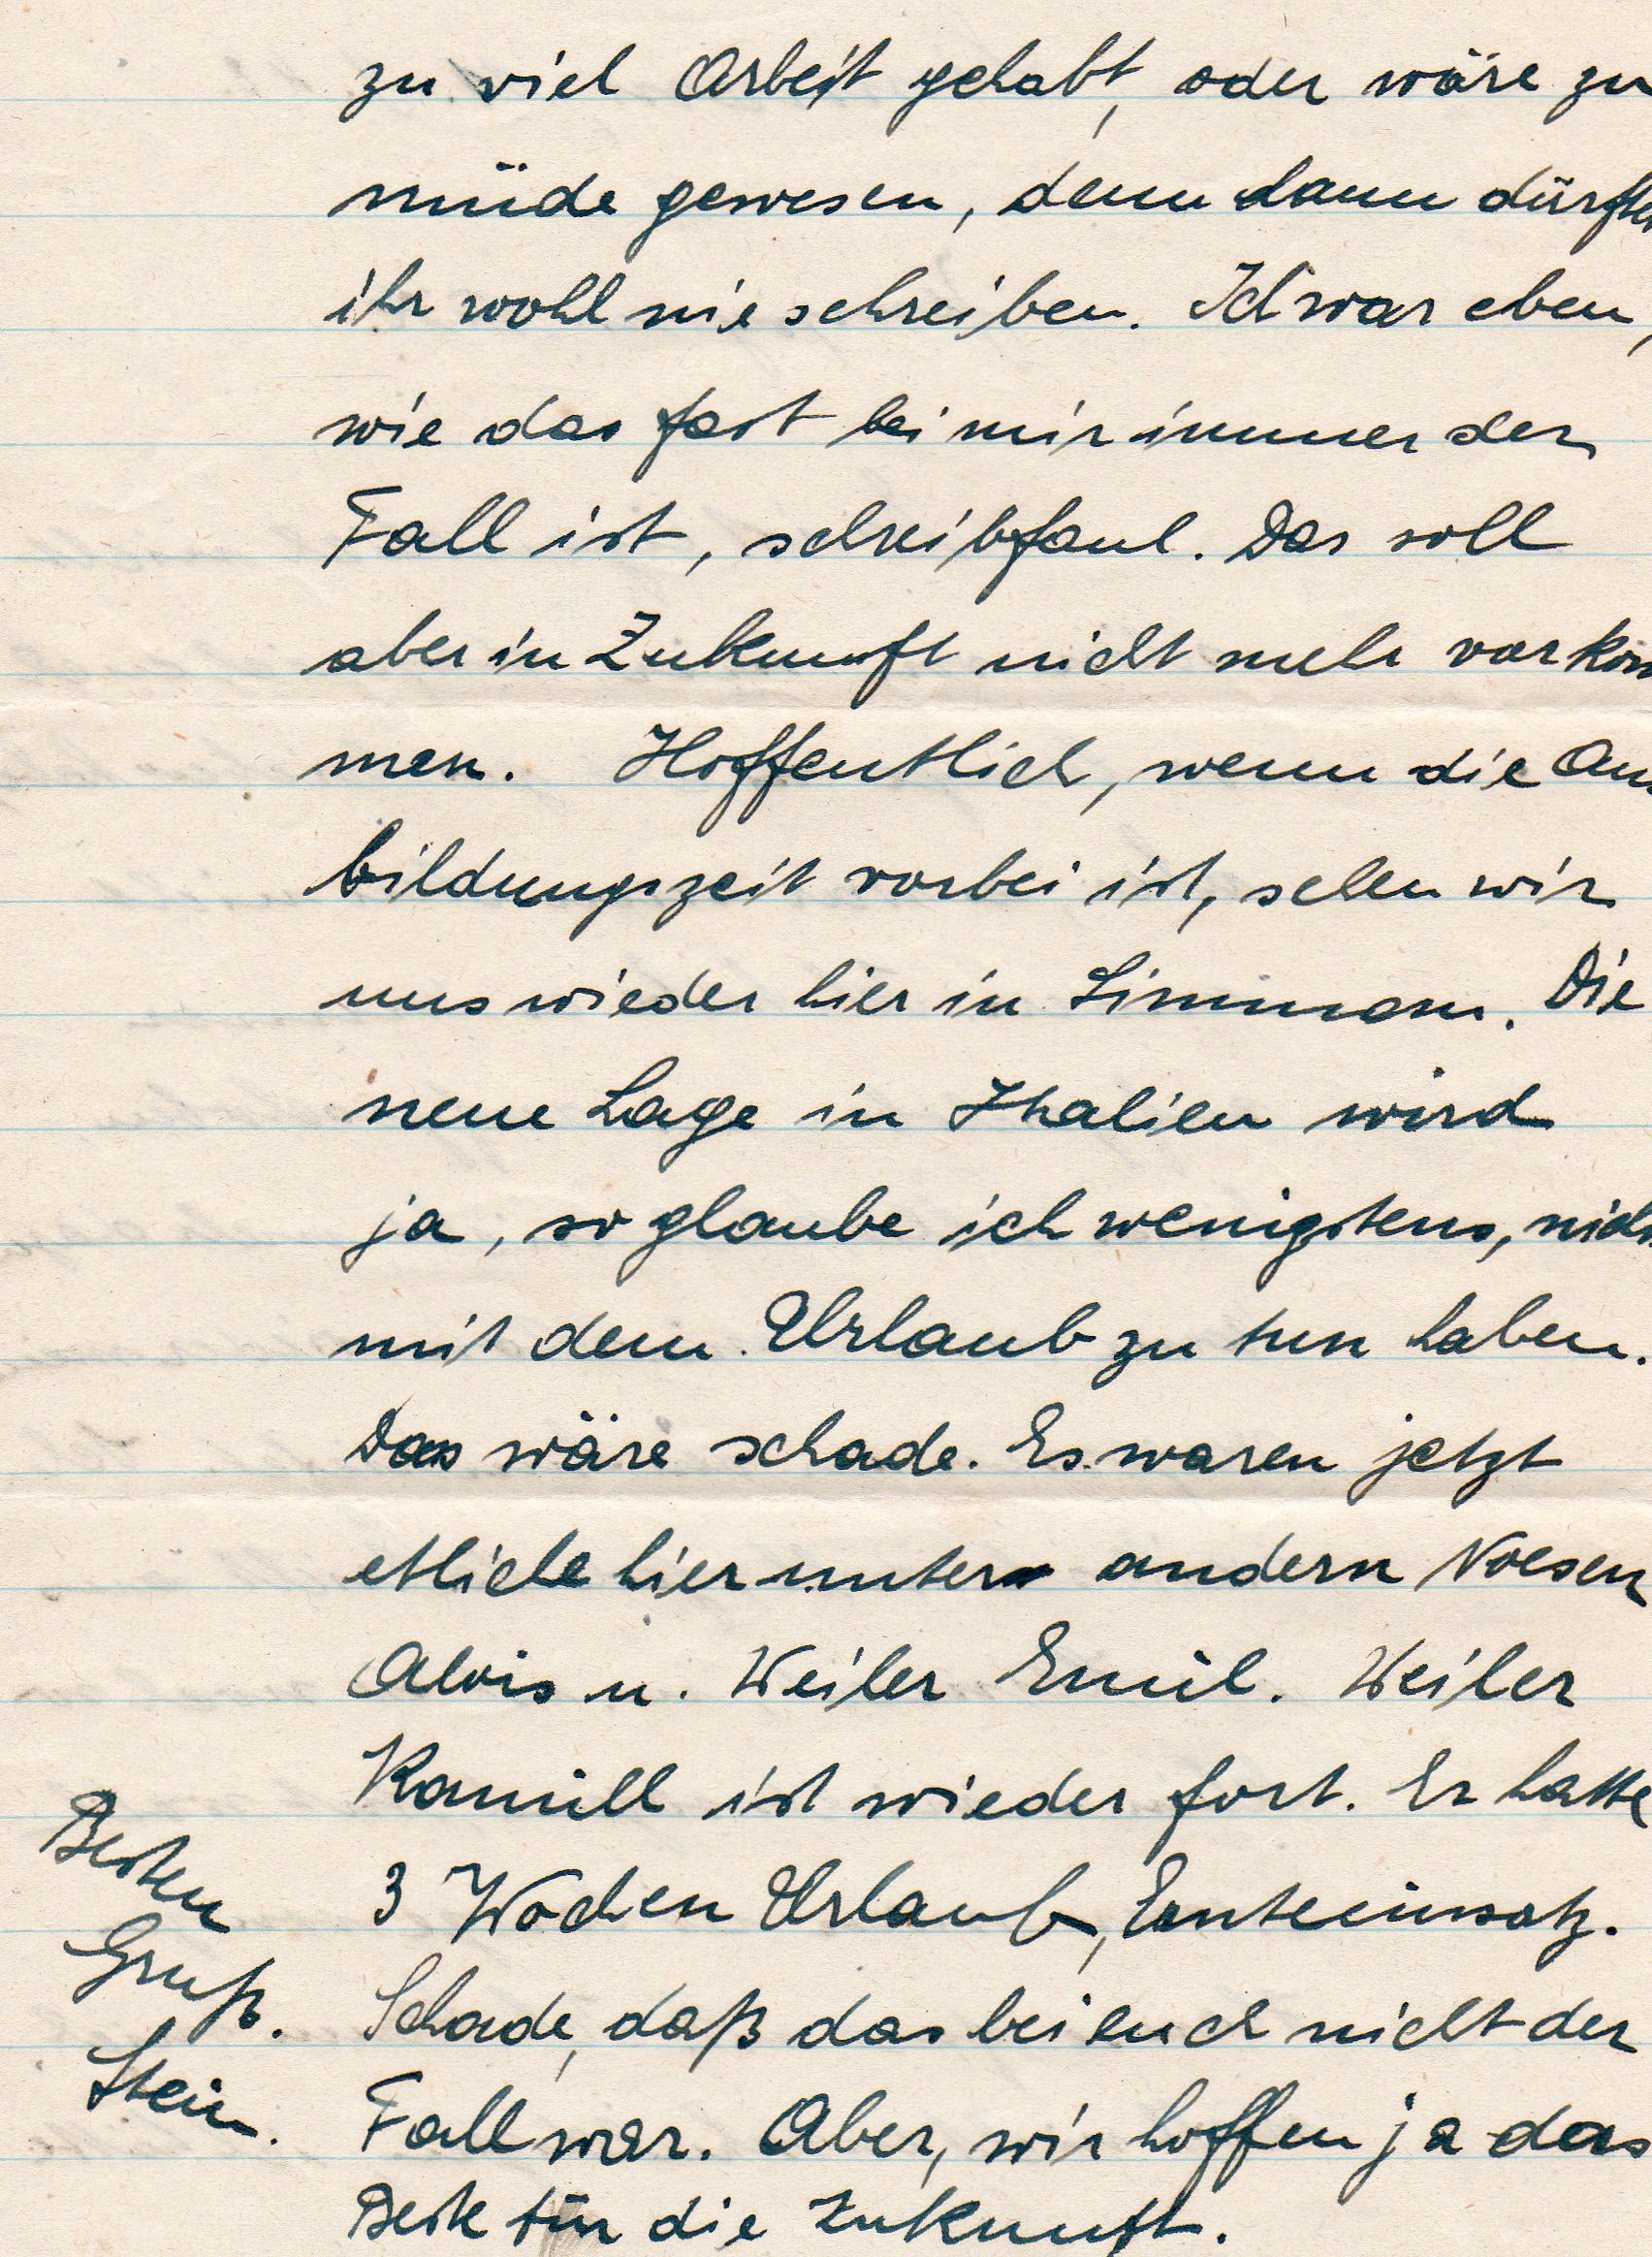 zu viel Arbeit gehabt, oder wäre zu
müde gewesen, denn dann dürftet
ihr wohl nie schreiben. Ich war eben,
wie das fast bei mir immer der
Fall ist, schreibfaul. Das soll
aber in Zukunft nicht mehr vorkom
men. Hoffentlich, wenn die Aus
bildungszeit vorbei ist, sehen wir
uns wieder hier in Simmern. Die
neue Lage in Italien wird
ja, so glaube ich wenigstens, nichts
mit dem Urlaub zu tun haben.
Das wäre schade. Es waren jetzt
etliche hier unter andern Noesen
Alois u. Weiler Emil. Weiler
Kamill ist wieder fort. Er hatte
3 Wochen Urlaub, Ernteeinsatz.
Schade, daß das bei euch nicht der
Fall war. Aber, wir hoffen ja das
Beste für die Zukunft.
Besten
Gruß.
Stein.